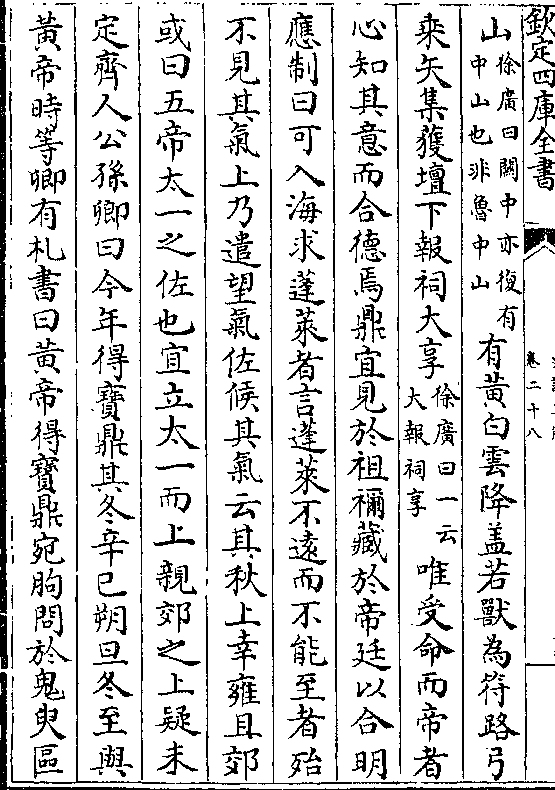 欽定四庫全書
卷二十八
山徐廣曰闗中亦復有中山也非魯中山有黃白雲降盖若獸為符路弓
乗矢集獲壇下報祠大享徐廣曰一云大報祠享唯受命而帝者
心知其意而合德焉鼎宜見於祖禰藏於帝廷以合明
應制曰可入海求蓬萊者言蓬萊不遠而不能至者殆
不見其氣上乃遣望氣佐候其氣云其秋上幸雍且郊
或曰五帝太一之佐也宜立太一而上親郊之上疑未
定齊人公孫卿曰今年得寶鼎其冬辛巳朔旦冬至與
黃帝時等卿有札書曰黃帝得寶鼎宛朐問於鬼臾區